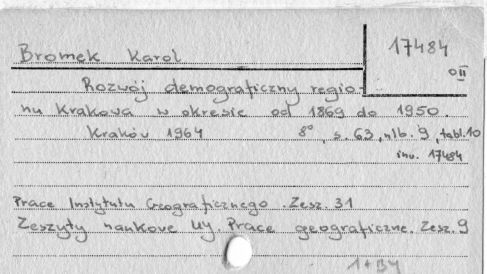 Bromek Karol
17484
OII
Rozwój demograficzny regio-
nu Krakowa w okresie od 1869 do 1950.
Kraków 1964 8°, s. 63, nlb. 9, tabl. 10
inv. 17484
Prace Instytutu Geograficznego. Zesz. 31
Zeszyty naukowe UJ. Prace geograficzne. Zesz. 9